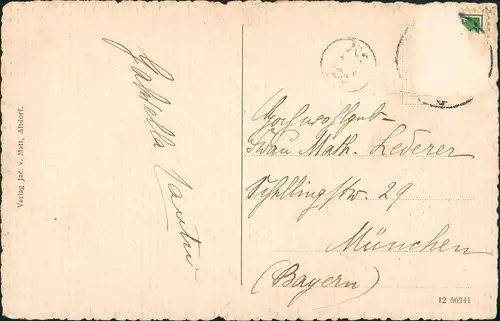 Gabriella
Verlag Jac. v. Matt, Altdorf.
Hochwohlgeb-
Frau Math. Lederer
Schellingstr. 29
München
(Bayern)
12 66341